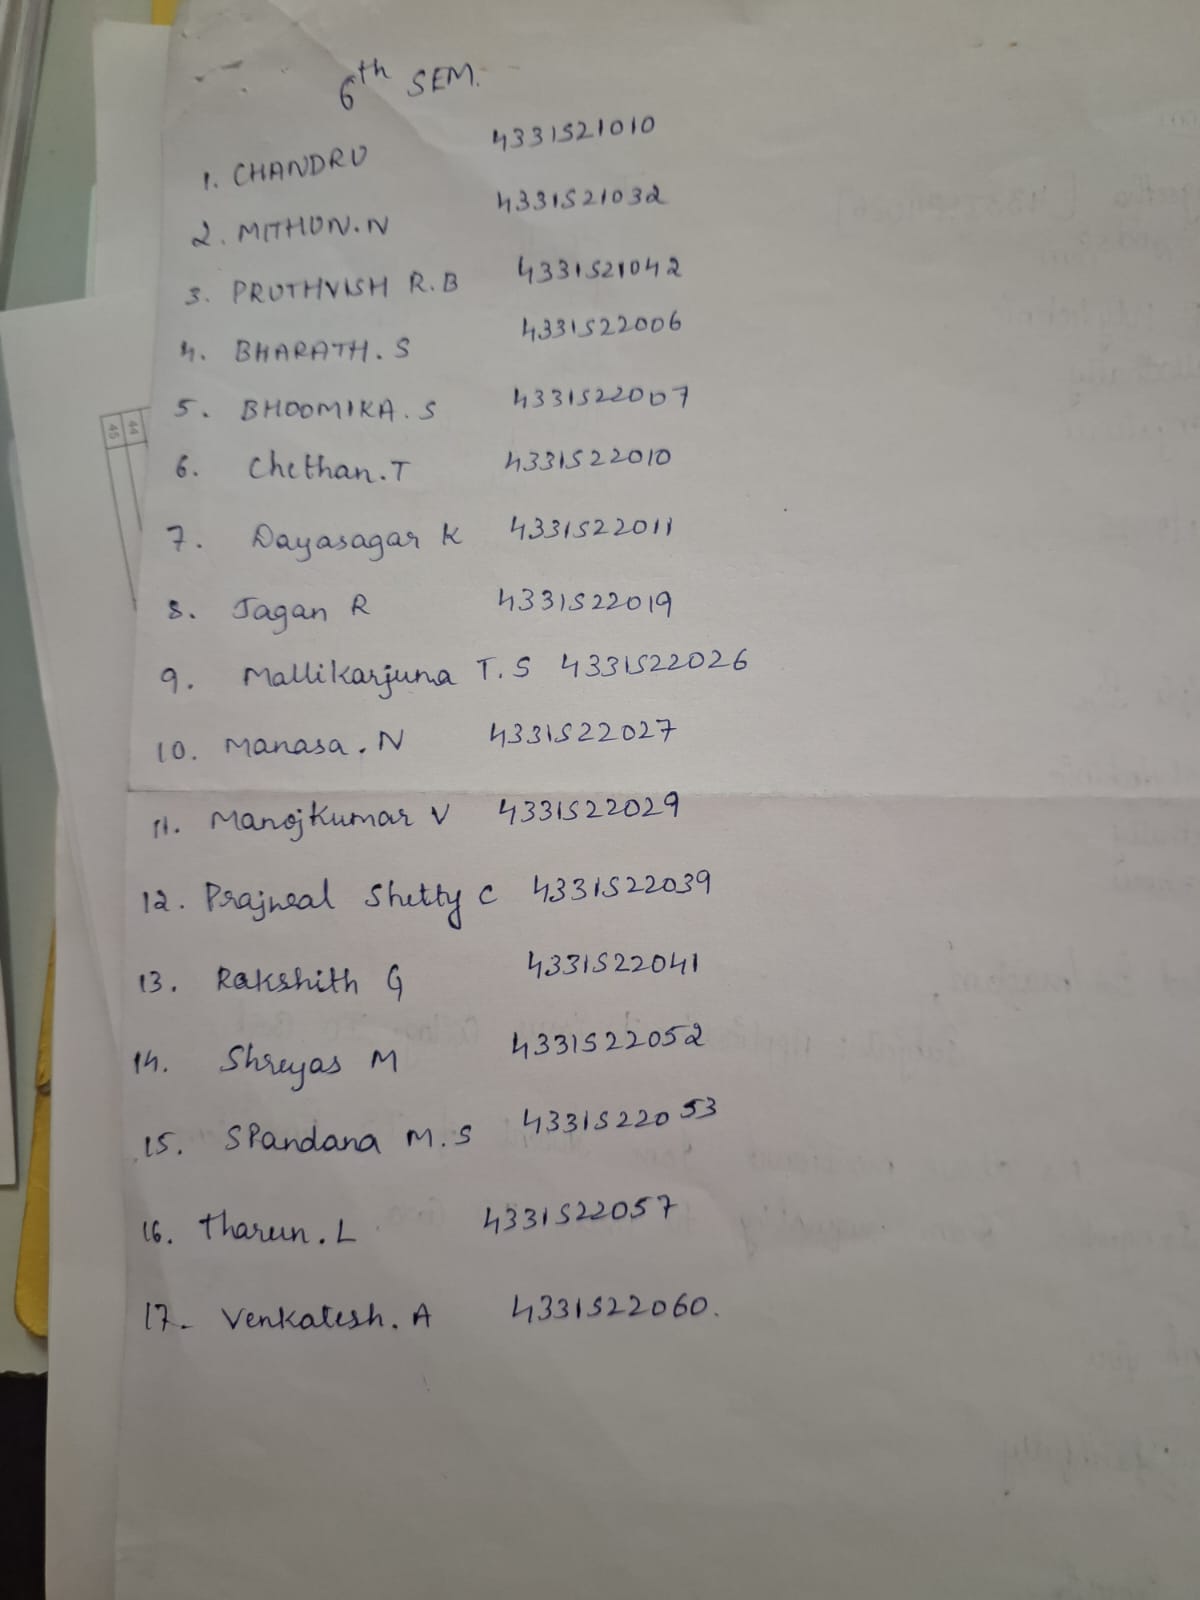 6th SEM.
1. CHANDRU 4331S21010
2. MITHUN.N 4331S21032
3. PRUTHVISH R.B 4331S21042
4. BHARATH.S 4331S22006
5. BHOOMIKA.S 4331S22007
6. Chethan.T 4331S22010
7. Dayasagar K 4331S22011
8. Jagan R 4331S22019
9. Mallikarjuna T.S 4331S22026
10. Manasa.N 4331S22027
11. Manojkumar V 4331S22029
12. Prajwal Shetty C 4331S22039
13. Rakshith G 4331S22041
14. Shreyas M 4331S22052
15. SPandana M.S 4331S22053
16. Tharun.L 4331S22057
17. Venkatesh.A 4331S22060.
44
45